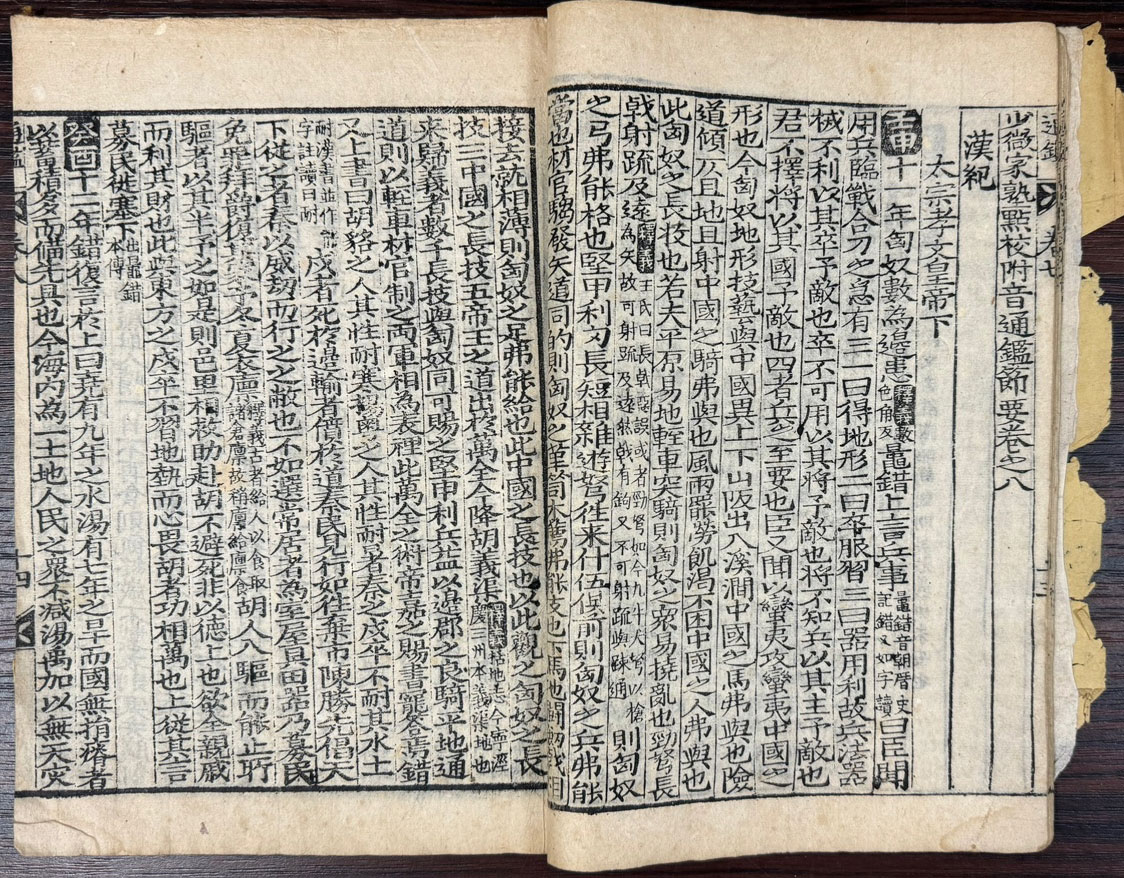 少微家塾點校附音通鑑節要卷之八
漢紀
太宗孝文皇帝下
壬申十一年匈奴數為邊患釋義數色角反鼂錯上言兵事鼂錯音朝厝史記錯又如字讀曰臣聞
用兵臨戰合刃之急有三一曰得地形二曰卒服習三曰器用利故兵法器
械不利以其卒予敵也卒不可用以其將予敵也將不知兵以其主予敵也
君不擇將以其國予敵也四者兵之至要也臣又聞以蠻夷攻蠻夷中國之
形也今匈奴地形技藝與中國異上下山阪出入溪澗中國之馬弗與也險
道傾仄且馳且射中國之騎弗與也風雨罷勞飢渴不困中國之人弗與也
此匈奴之長技也若夫平原易地輕車突騎則匈奴之衆易撓亂也勁弩長
戟射疏及遠釋義王氏曰長戟恐誤或者勁弩如今九牛大弩以槍為矢故可射疏及遠然戟有鉤又不可射疏與踈通則匈奴
之弓弗能格也堅甲利刃長短相雜遊弩往來什伍俱前則匈奴之兵弗能
當也材官騶發矢道同的則匈奴之革笥木薦弗能支也下馬地鬪劒戟相
接去就相薄則匈奴之足弗能給也此中國之長技也以此觀之匈奴之長
技三中國之長技五帝王之道出於萬全今降胡義渠釋義括地志今寧涇慶三州本義渠地也
來歸義者數千長技與匈奴同可賜之堅甲利兵益以邊郡之良騎平地通
道則以輕車材官制之兩軍相為表裡此萬全之術帝嘉之賜書寵答焉錯
又上書曰胡貉之人其性耐寒楊粤之人其性耐暑秦之戍卒不耐其水土
耐漢書並作能字註讀曰耐戍者死於邊輸者僨於道秦民見行如往棄市陳勝先倡天
下從之者秦以威劫而行之之敝也不如選常居者為室屋具田器乃募民
免罪拜爵復其家予冬夏衣廩釋義古者給人以食取諸倉廩故稱廩給廩食胡人入驅而能止所
驅者以其半予之如是則邑里相救助赴胡不避死非以德上也欲全親戚
而利其財也此與東方之戍卒不習地勢而心畏胡者功相萬也上從其言
募民徙塞下出鼂錯本傳
癸酉十二年錯復言於上曰堯有九年之水湯有七年之旱而國無捐瘠者
以蓄積多而備先具也今海內為一土地人民之衆不減湯禹加以無天灾